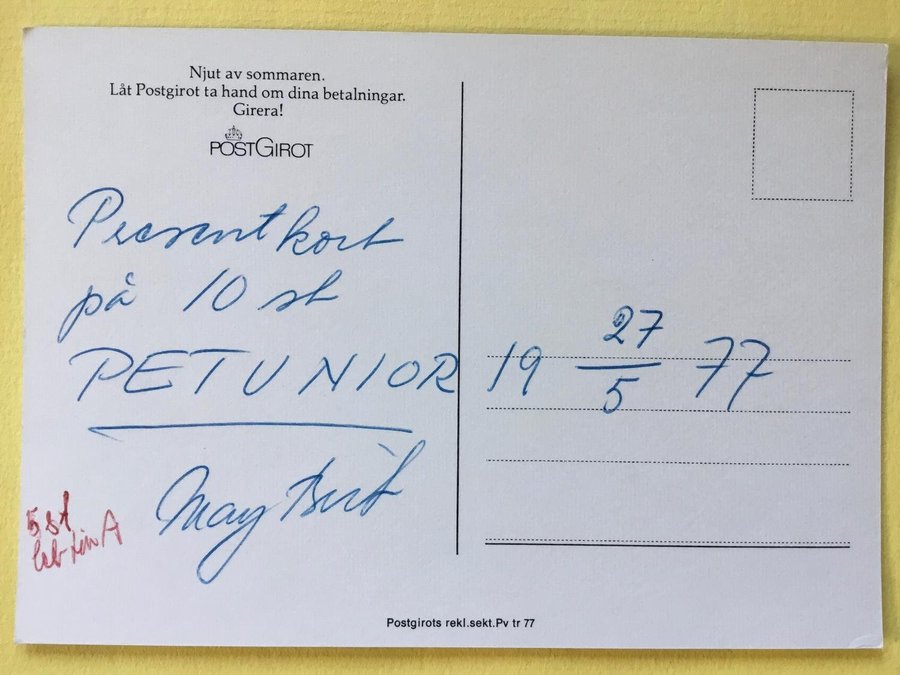 Njut av sommaren.
Låt Postgirot ta hand om dina betalningar.
Girera!
POSTGIROT
Presentkort
på 10 st
PETUNIOR
May Britt
5 st
19 27/5 77
Postgirots rekl.sekt.Pv tr 77